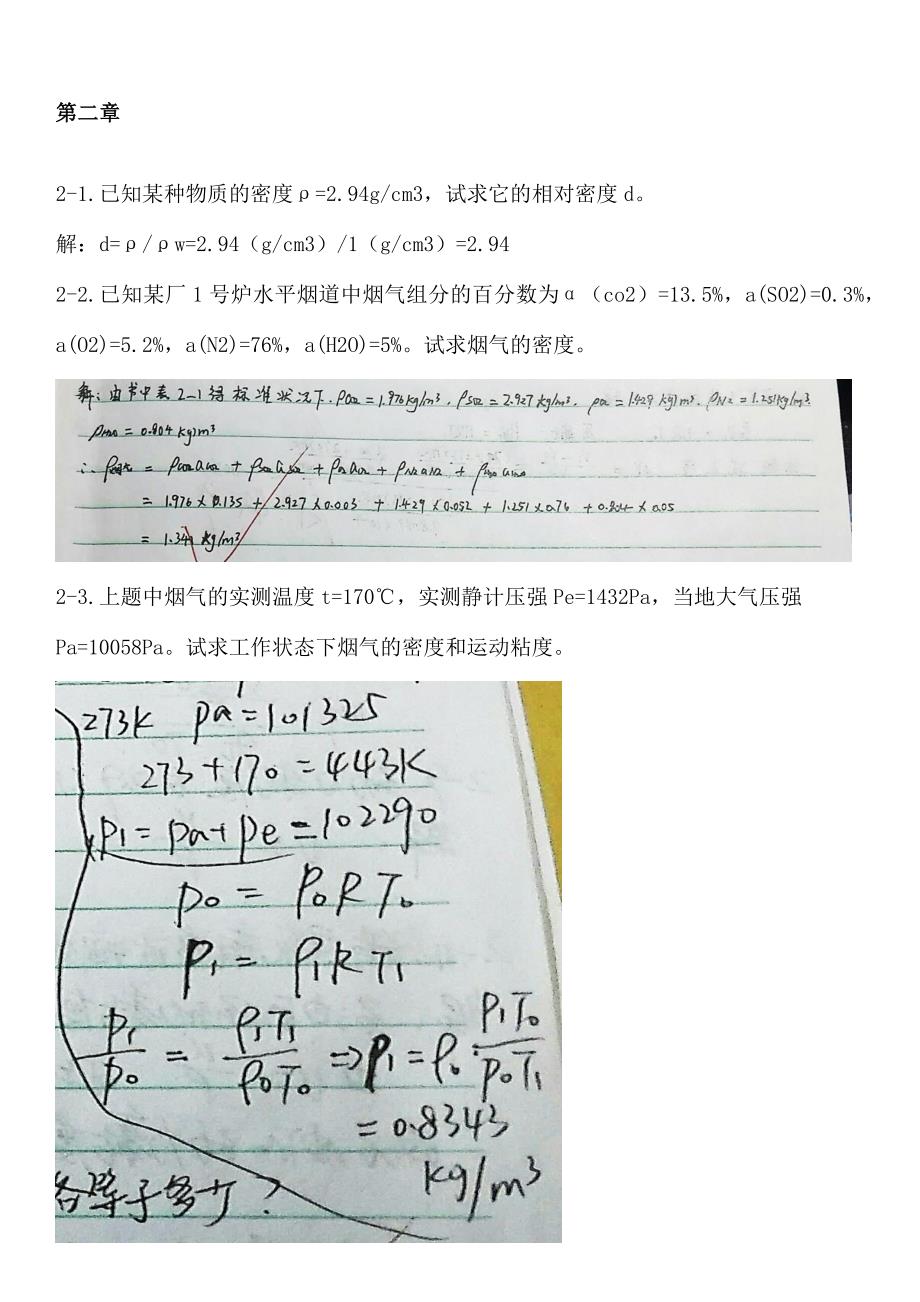 第二章
2-1.已知某种物质的密度ρ=2.94g/cm3，试求它的相对密度d。
解：d=ρ/ρw=2.94（g/cm3）/1（g/cm3）=2.94
2-2.已知某厂1号炉水平烟道中烟气组分的百分数为α（co2）=13.5%，a(SO2)=0.3%，
a(O2)=5.2%，a(N2)=76%，a(H2O)=5%。试求烟气的密度。
解：由书中表2-1得标准状况下，ρCO2=1.976kg/m³，ρSO2=2.927kg/m³，ρO2=1.429kg/m³，ρN2=1.251kg/m³
ρH2O=0.804kg/m³
∴ρ烟气=ρCO2αCO2+ρSO2αSO2+ρO2αO2+ρN2αN2+ρH2OαH2O
=1.976×0.135+2.927×0.003+1.429×0.052+1.251×0.76+0.804×0.05
=1.341kg/m³
2-3.上题中烟气的实测温度t=170℃，实测静计压强Pe=1432Pa，当地大气压强
Pa=10058Pa。试求工作状态下烟气的密度和运动粘度。
273K pa=101325
273+170=443K
p1=pa+pe=102290
p0=ρ0RT0
p1=ρ1RT1
p1/p0=ρ1T1/ρ0T0⇒ρ1=ρ0·p1T0/p0T1
=0.8343
kg/m³
各等于多少？